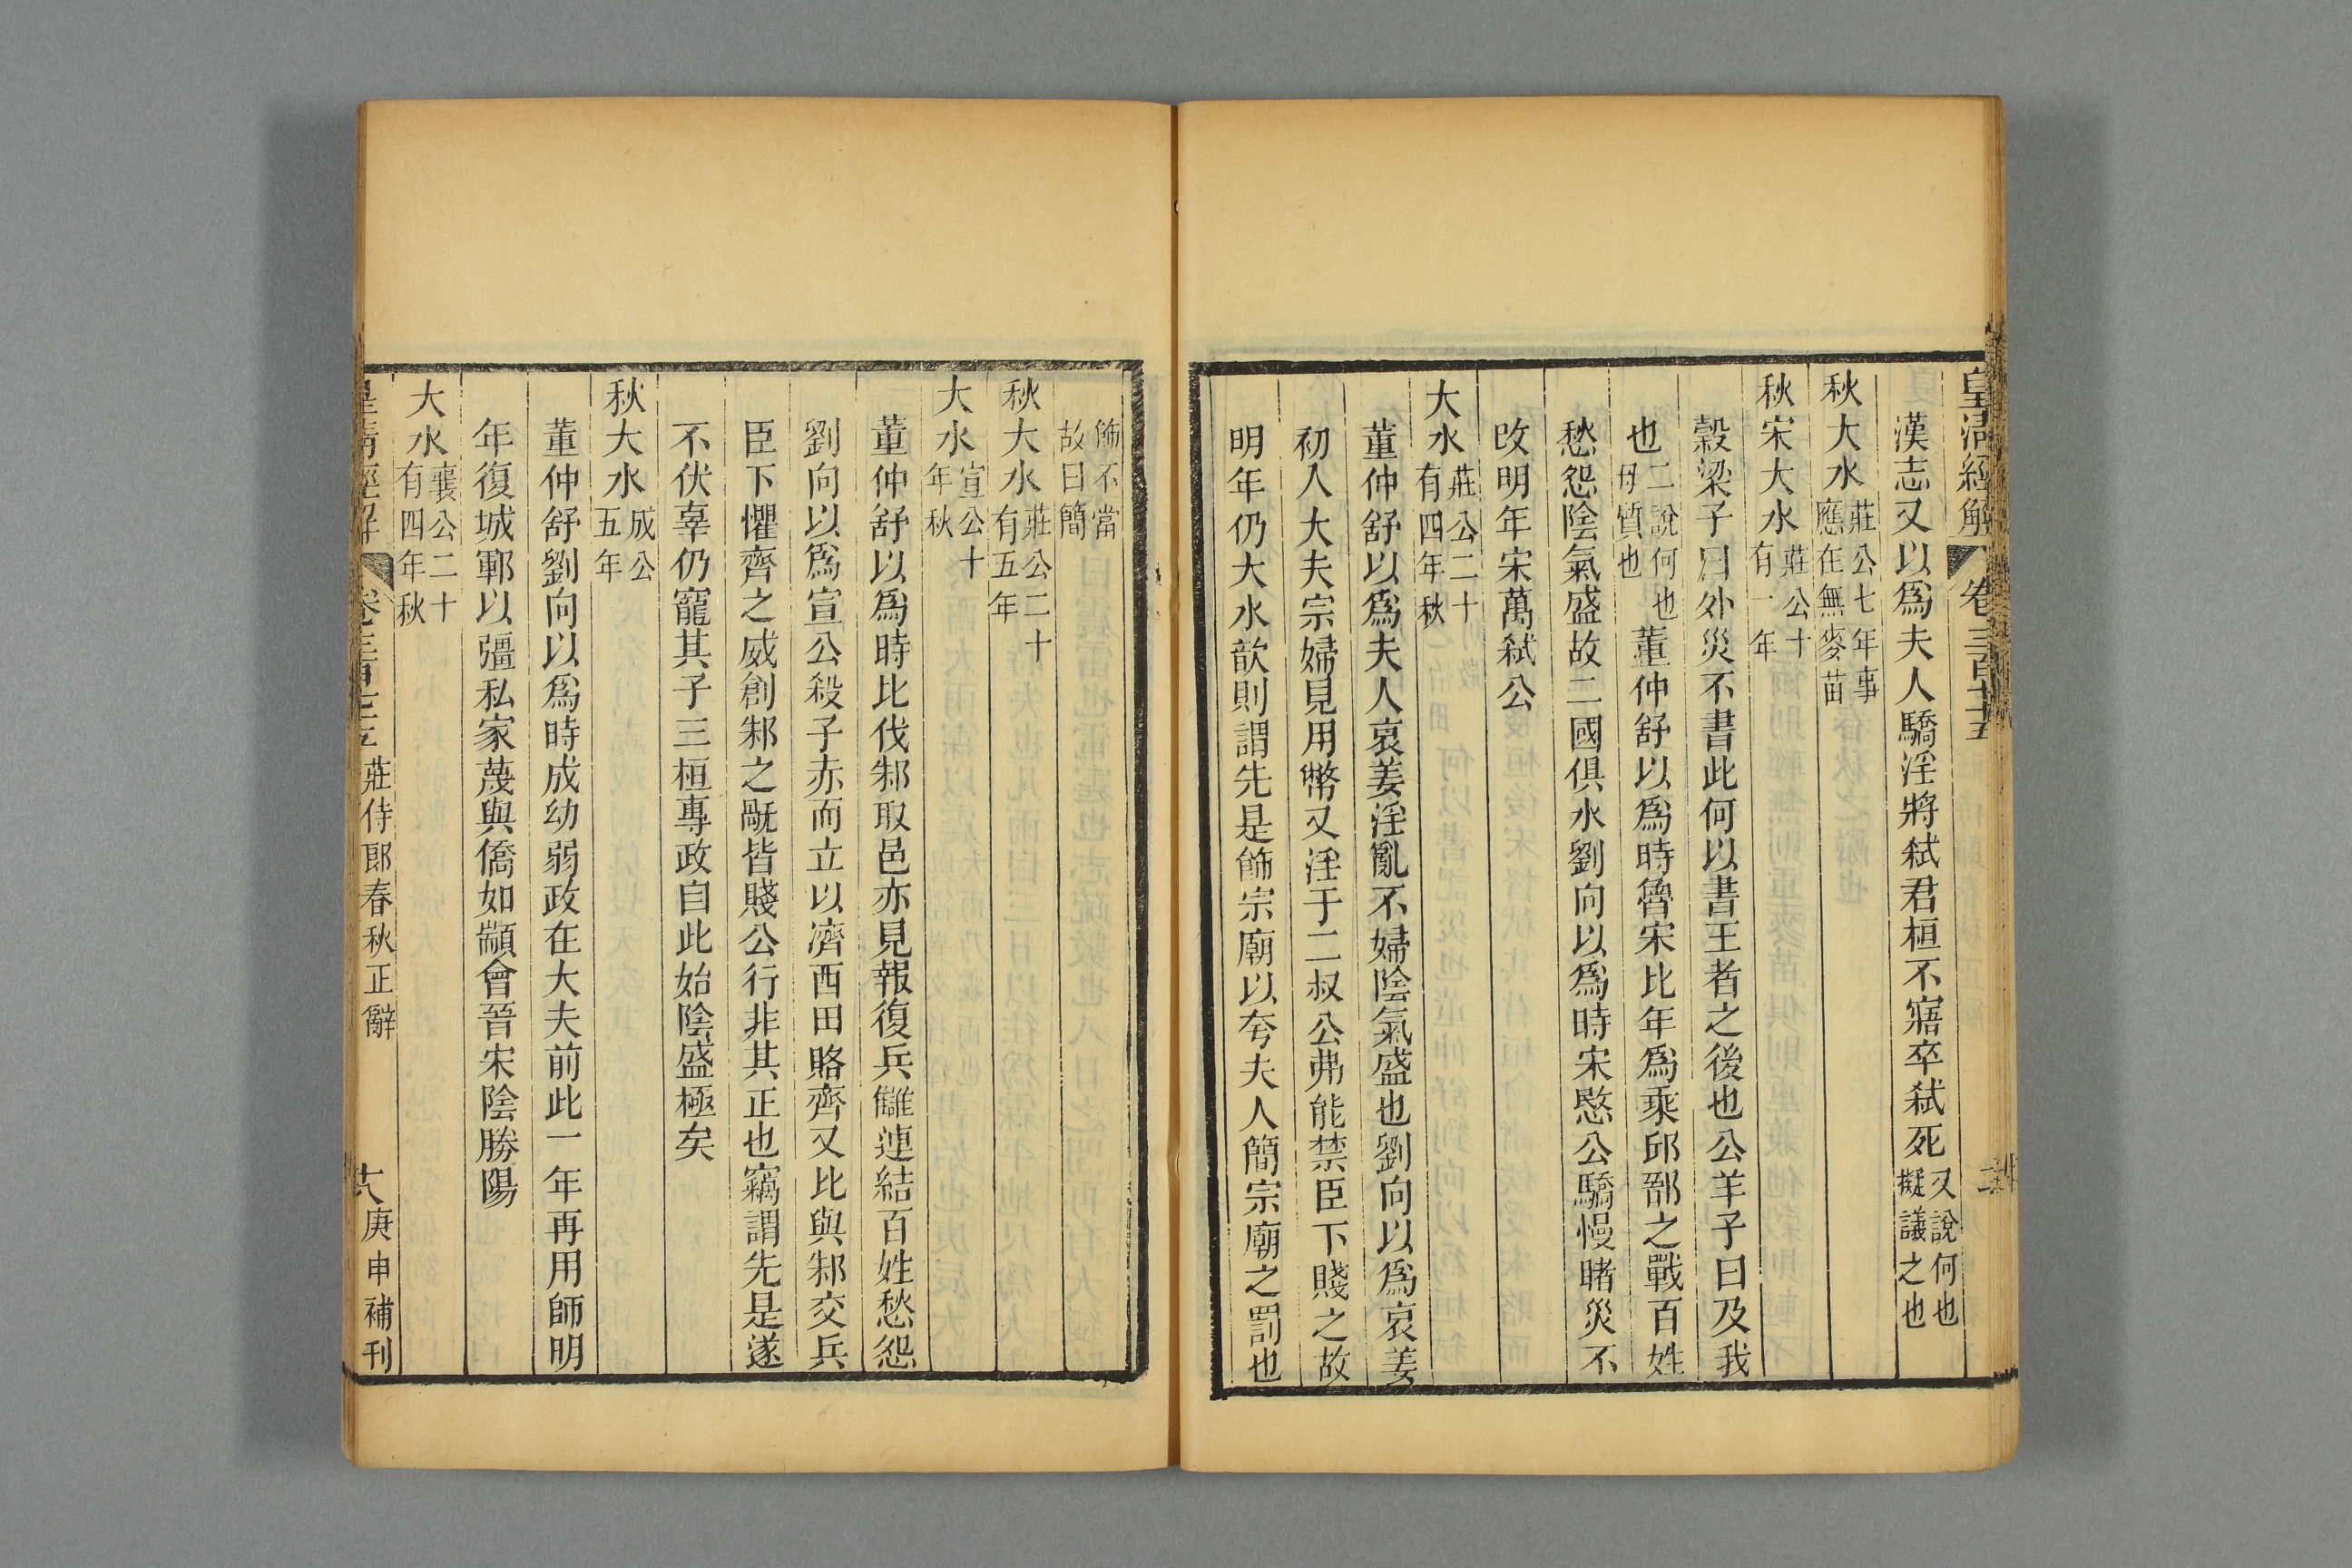 皇清經解 卷三百七十五
漢志又以爲夫人驕淫將弑君桓不寤卒弑死又說何也擬議之也
秋大水莊公七年事應在無麥苗
秋宋大水莊公十有一年
穀梁子曰外災不書此何以書王者之後也公羊子曰及我
也二說何也毋質也董仲舒以爲時魯宋比年爲乘邱鄑之戰百姓
愁怨陰氣盛故二國俱水劉向以爲時宋愍公驕慢睹災不
改明年宋萬弑公
大水莊公二十有四年秋
董仲舒以爲夫人哀姜淫亂不婦陰氣盛也劉向以爲哀姜
初入大夫宗婦見用幣又淫于二叔公弗能禁臣下賤之故
明年仍大水歆則謂先是飾宗廟以夸夫人簡宗廟之罰也
飾不當故曰簡
秋大水莊公二十有五年
大水宣公十年秋
董仲舒以爲時比伐邾取邑亦見報復兵讎連結百姓愁怨
劉向以爲宣公殺子赤而立以濟西田賂齊又比與邾交兵
臣下懼齊之威創邾之𣀷皆賤公行非其正也竊謂先是遂
不伏辜仍寵其子三桓專政自此始陰盛極矣
秋大水成公五年
董仲舒劉向以爲時成幼弱政在大夫前此一年再用師明
年復城鄆以彊私家蔑與僑如顓會晉宋陰勝陽
大水襄公二十有四年秋
皇清經解 卷三百七十五 莊侍郎春秋正辭 庚申補刊